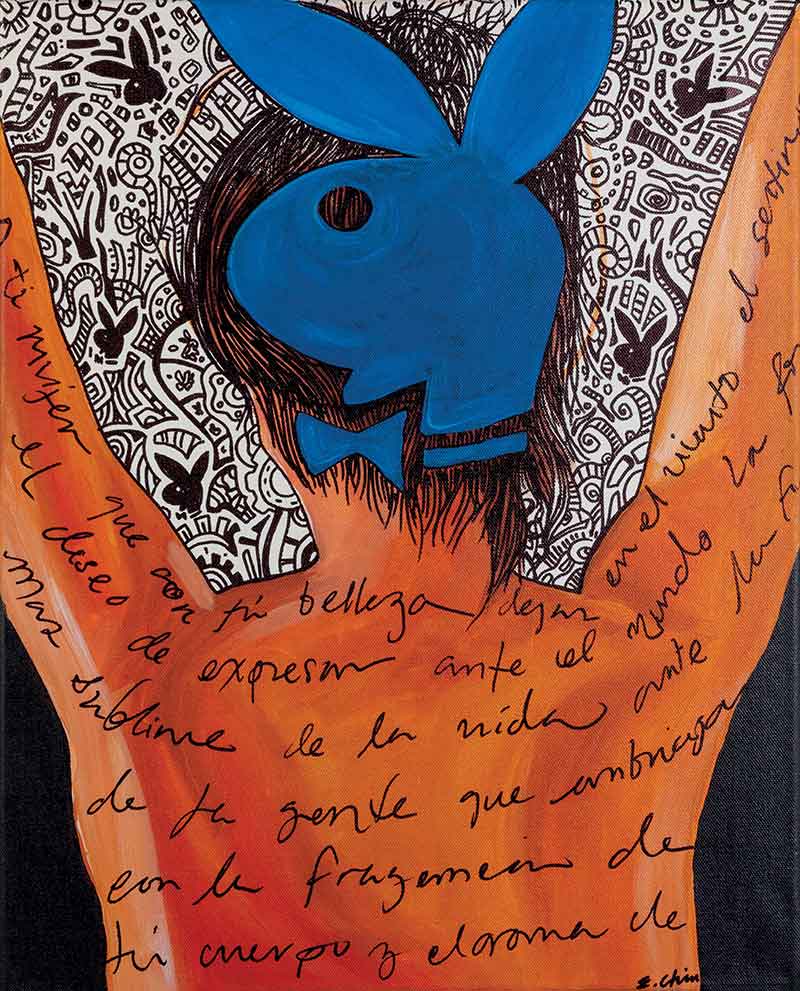 MEXICO
ti mujer que con tú belleza dejas en el viento el
el deseo de expresar ante el mundo la
mas sublime de la vida ante
de ta gente que
con la fragancia de
tú cuerpo y el aroma de
E. Chin